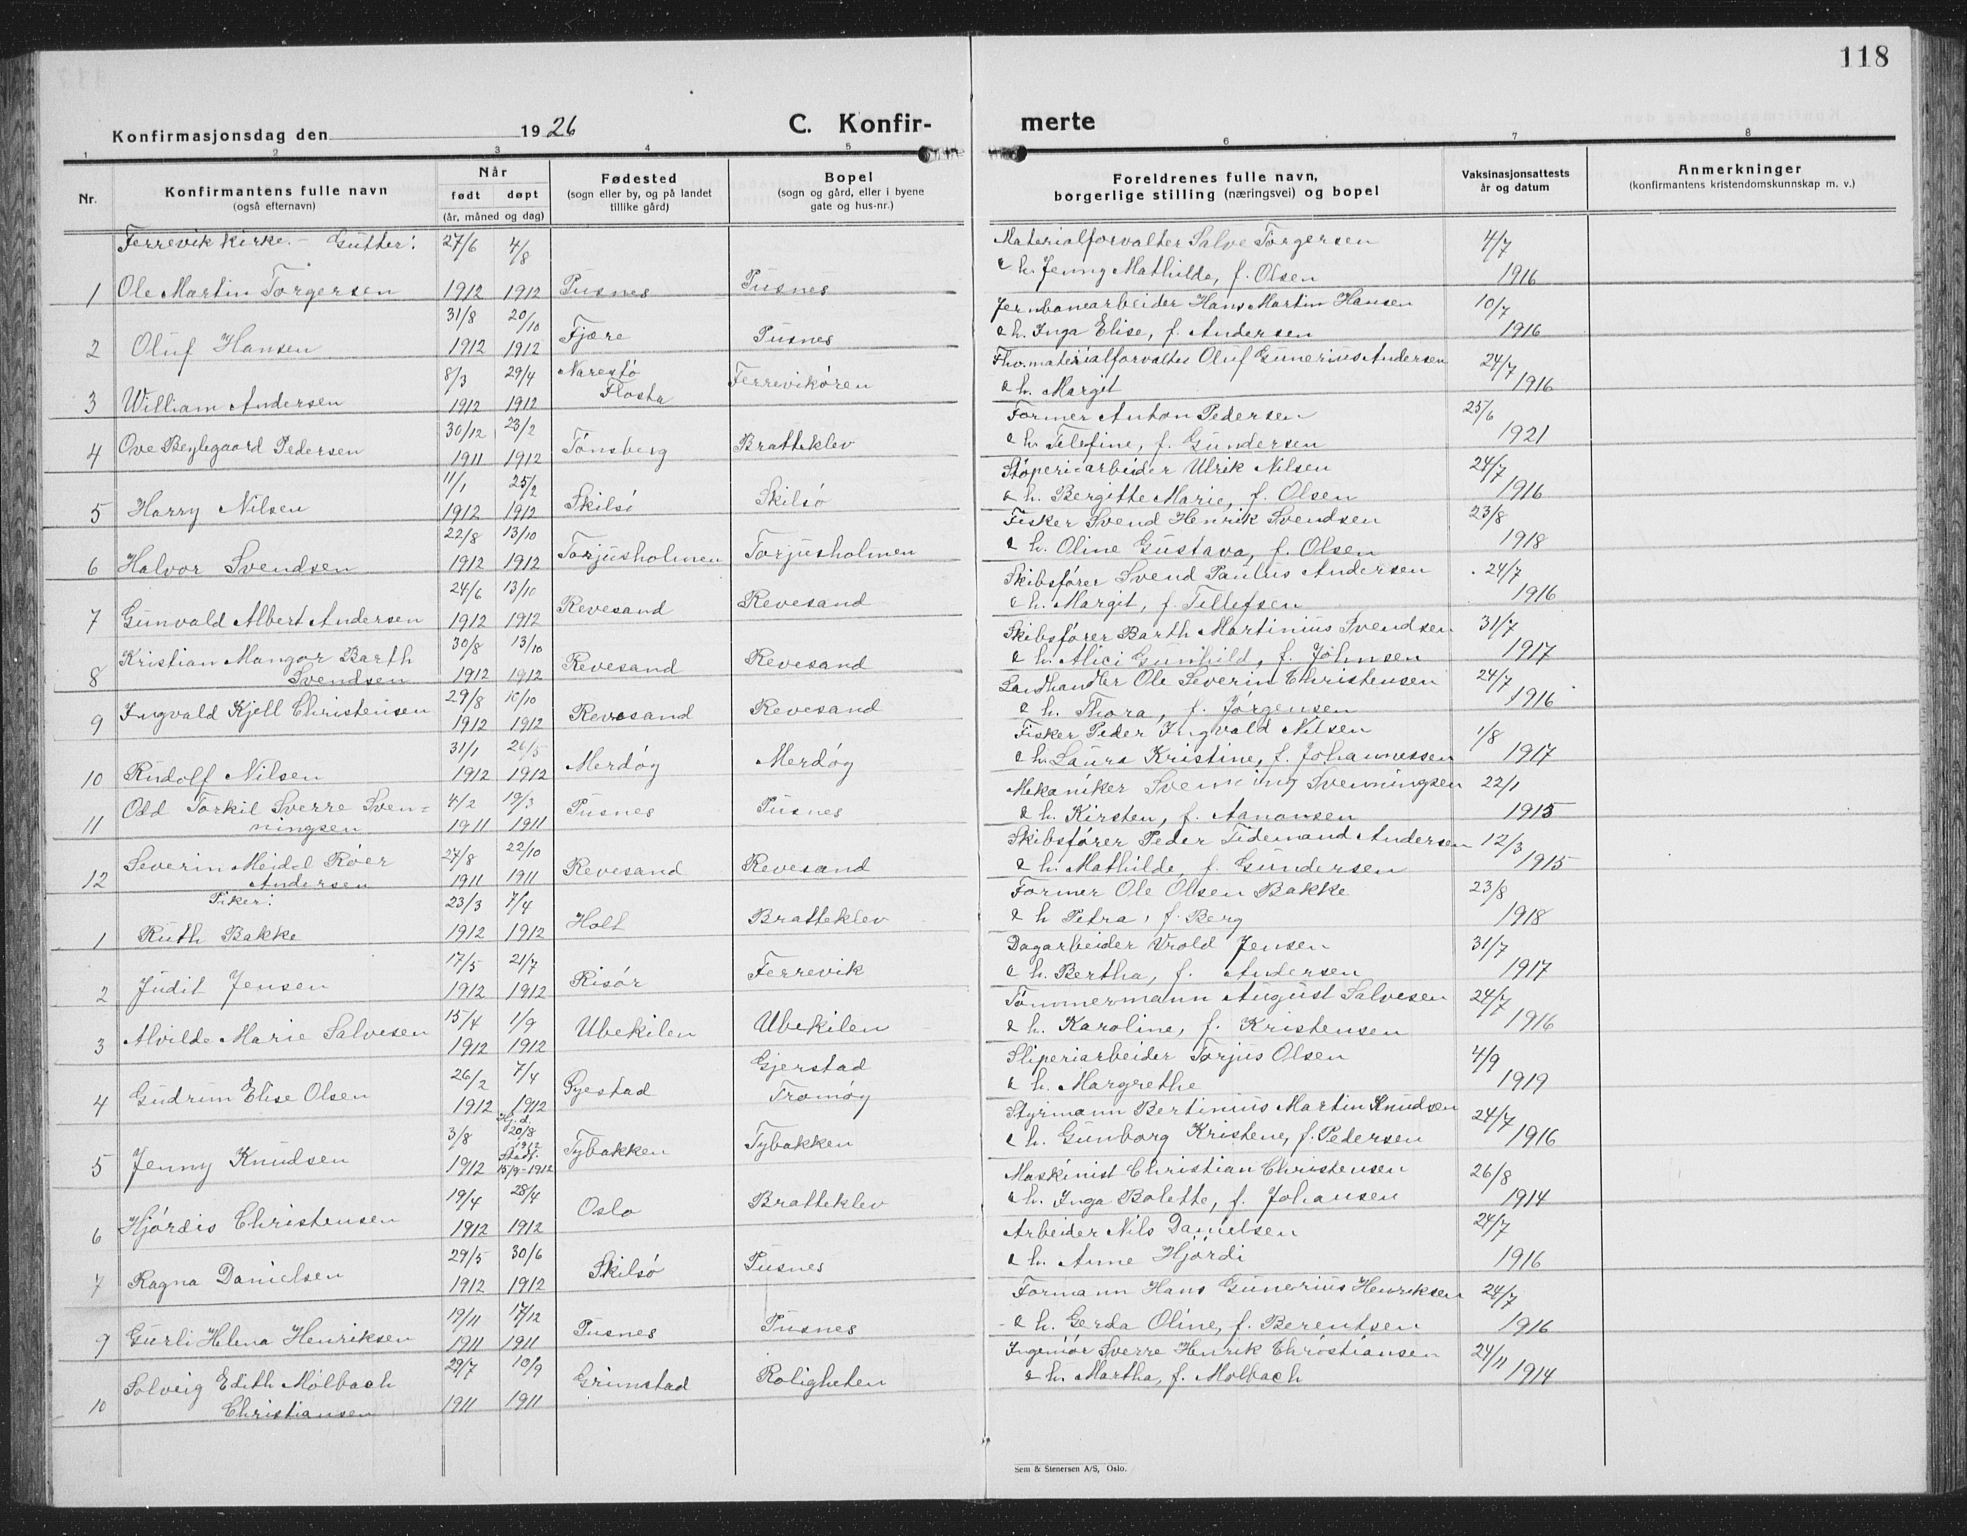 118
Konfirmasjonsdag den 1926 C. Konfir- merte
1 2 3 4 5 6 7 8
Nr. Konfirmantens fulle navn (også efternavn) Når født døpt (år, måned og dag) Fødested (sogn eller by, og på landet tillike gård) Bopel (sogn og gård, eller i byene gate og hus-nr.) Foreldrenes fulle navn, borgerlige stilling (næringsvei) og bopel Vaksinasjonsattests år og datum Anmerkninger (konfirmantens kristendomskunnskap m. v.)
Færrevik kirke. - Gutter: 27/6 4/8 Materialforvalter Salve Torgersen 4/7
1 Ole Martin Torgersen 1912 1912 Pusnes Pusnes & h. Jenny Mathilde, f. Olsen 1916
31/8 20/10 Jernbanearbeider Hans Martin Hansen 10/7
2 Oluf Hansen 1912 1912 Fjære Pusnes & h. Inga Elise, f. Andersen 1916
8/3 29/4 Narestø materialforvalter Oluf Gunerius Andersen 24/7
3 William Andersen 1912 1912 Flosta Færrevikøren & h. Margit 1916
30/12 23/2 Former Anton Pedersen 25/6
4 Ove Pedersen 1911 1912 Tønsberg Bratteklev & h. Telefine, f. Gundersen 1921
11/1 25/2 Støperiarbeider Ulrik Nilsen 24/7
5 Harry Nilsen 1912 1912 Skilsø Skilsø & h. Bergitte Marie, f. Olsen 1916
22/8 13/10 Fisker Svend Henrik Svendsen 23/8
6 Halvor Svendsen 1912 1912 Torjusholmen Torjusholmen & h. Oline Gustava, f. Olsen 1918
24/6 13/10 Skibsfører Svend Paulus Andersen 24/7
7 Gunvald Albert Andersen 1912 1912 Revesand Revesand & h. Margit, f. Tellefsen 1916
Kristian Mangor Barth 30/8 13/10 Skibsfører Barth Martinius Svendsen 31/7
8 Svendsen 1912 1912 Revesand Revesand & h. Alici Gunhild, f. Johnsen 1917
29/8 10/10 Landhandler Ole Severin Christensen 24/7
9 Ingvald Kjell Christensen 1912 1912 Revesand Revesand & h. Thora, f. Jørgensen 1916
31/1 26/5 Fisker Peder Ingvald Nilsen 1/8
10 Rudolf Nilsen 1912 1912 Merdøy Merdøy & h. Laura Kristine, f. Johannessen 1917
Odd Torkil Sverre Sven= 4/2 19/3 Mekaniker Svenning Svenningsen 22/1
11 ningsen 1911 1911 Pusnes Pusnes & h. Kirsten, f. Aanonsen 1915
Severin Meidel Røer 27/8 22/10 Skibsfører Peder Tidemand Andersen 12/3
12 Andersen 1911 1911 Revesand Revesand & h. Mathilde, f. Gundersen 1915
Piker: 23/3 7/4 Former Ole Olsen Bakke 23/8
1 Ruth Bakke 1912 1912 Holt Bratteklev & h. Petra, f. Berg 1918
17/5 21/7 Dagarbeider Vrold Jensen 31/7
2 Judit Jensen 1912 1912 Risør Færrevik & h. Bertha, f. Andersen 1917
15/4 1/9 Tømmermann August Salvesen 24/7
3 Alvilde Marie Salvesen 1912 1912 Ubekilen Ubekilen & h. Karoline, f. Kristensen 1916
26/2 7/4 Gjerstad Sliperiarbeider Torjus Olsen 4/9
4 Gudrun Elise Olsen 1912 1912 Tromøy & h. Margrethe 1919
3/8 Hj. d. 20/8 1912 Styrmann Bertinius Martin Knudsen 24/7
5 Jenny Knudsen 1912 Stadf. 15/9-1912 Tybakken Tybakken & h. Gunborg Kristene, f. Pedersen 1916
19/4 28/4 Maskinist Christian Christensen 26/8
6 Hjørdis Christensen 1912 1912 Oslo Bratteklev & h. Inga Bolette, f. Johansen 1914
29/5 30/6 Arbeider Nils Danielsen 24/7
7 Ragna Danielsen 1912 1912 Skilsø Pusnes & h. Anne Hjørdi 1916
19/11 17/12 Formann Hans Gunerius Henriksen 24/7
9 Gurli Helena Henriksen 1911 1911 Pusnes Pusnes & h. Gerda Oline, f. Berentsen 1916
Solveig Edith Molbach 29/7 10/9 Ingeniør Sverre Henrik Christiansen 24/11
10 Christiansen 1911 1911 Grimstad Roligheten & h. Martha, f. Molbach 1914
Sem & Stenersen A/S, Oslo.